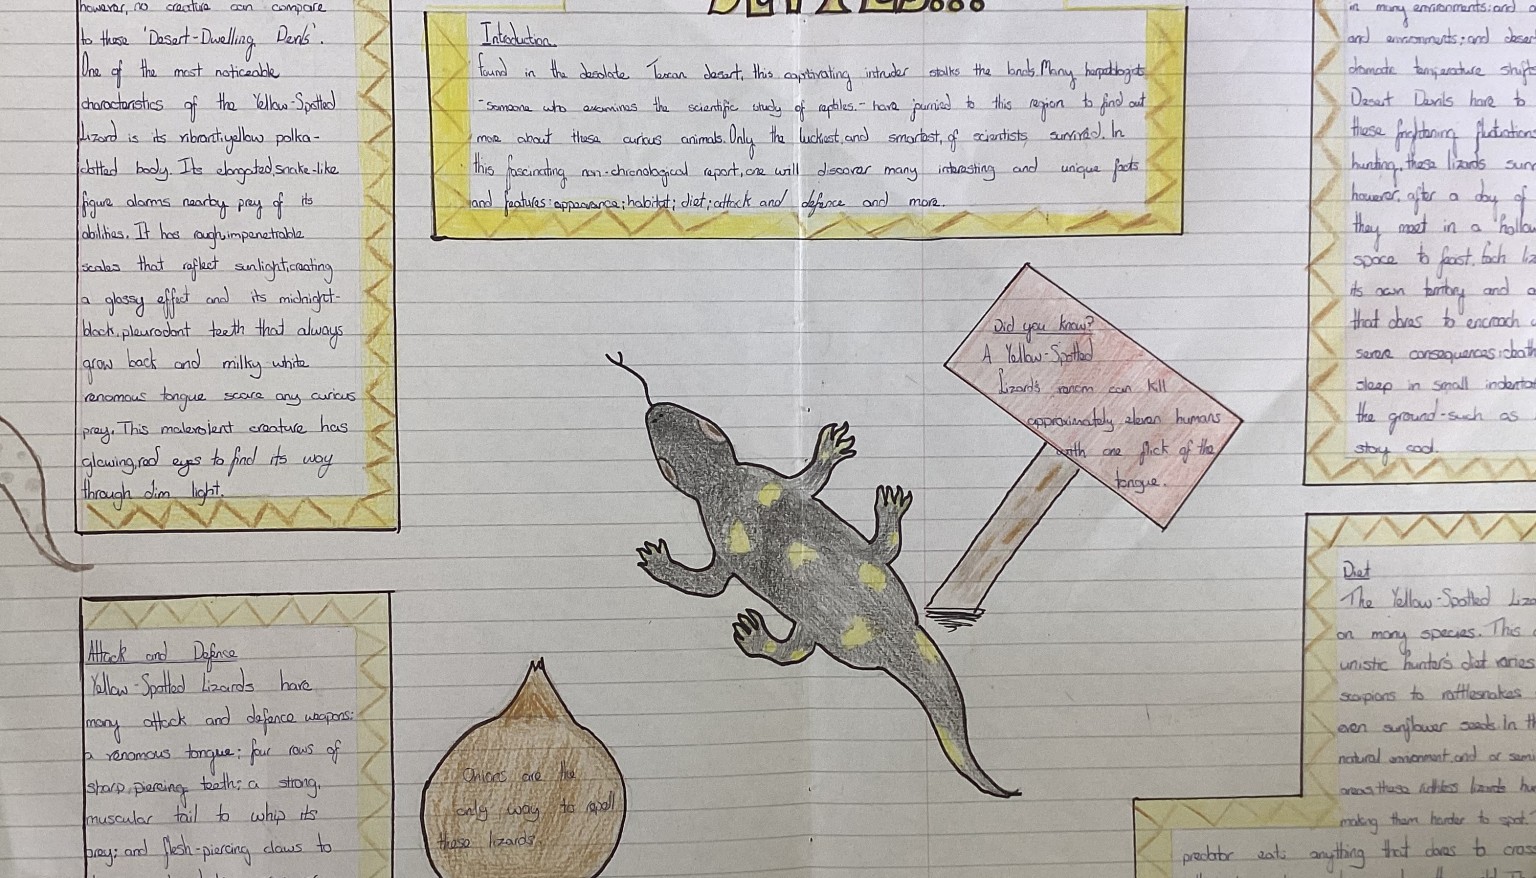 however, no creature can compare
to these 'Desert-Dwelling Devils'.
One of the most noticeable
characteristics of the Yellow-Spotted
Lizard is its vibrant, yellow polka-
dotted body. Its elongated, snake-like
figure alarms nearby prey of its
abilities. It has rough, impenetrable
scales that reflect sunlight, creating
a glossy effect and its midnight-
black, pleurodont teeth that always
grow back and milky white
venomous tongue scare any curious
prey. This malevolent creature has
glowing, red eyes to find its way
through dim light.
Attack and Defence
Yellow-Spotted Lizards have
many attack and defence weapons:
a venomous tongue; four rows of
sharp, piercing teeth; a strong,
muscular tail to whip its
prey; and flesh-piercing claws to
Introduction
Found in the desolate Texan desert, this captivating intruder stalks the lands. Many
-someone who examines the scientific study of reptiles.- have journied to this region to find out
more about these curious animals. Only the luckiest, and smartest, of scientists survived. In
this fascinating non-chronological report, one will discover many interesting and unique facts
and features: appearance; habitat; diet; attack and defence and more.
Did you know?
A Yellow-Spotted
Lizard's venom can kill
approximately eleven humans
with one flick of the
tongue.
Onions are the
only way to repell
these lizards
in many environments: and
and environments; and
dramatic temperature
Desert Devils have to
these frightening
hunting, these lizards
however, after a day of
they meet in a
space to feast. Each
its own territory and
that dares to encroach
severe consequences:
sleep in small
the ground-such as
stay cool.
Diet
The Yellow-Spotted
on many species. This
hunter's diet varies
scorpions to rattlesnakes
even sunflower seeds. In
natural environment, and or
areas, these ruthless lizards
making them harder to spot.
predator eats anything that dares to